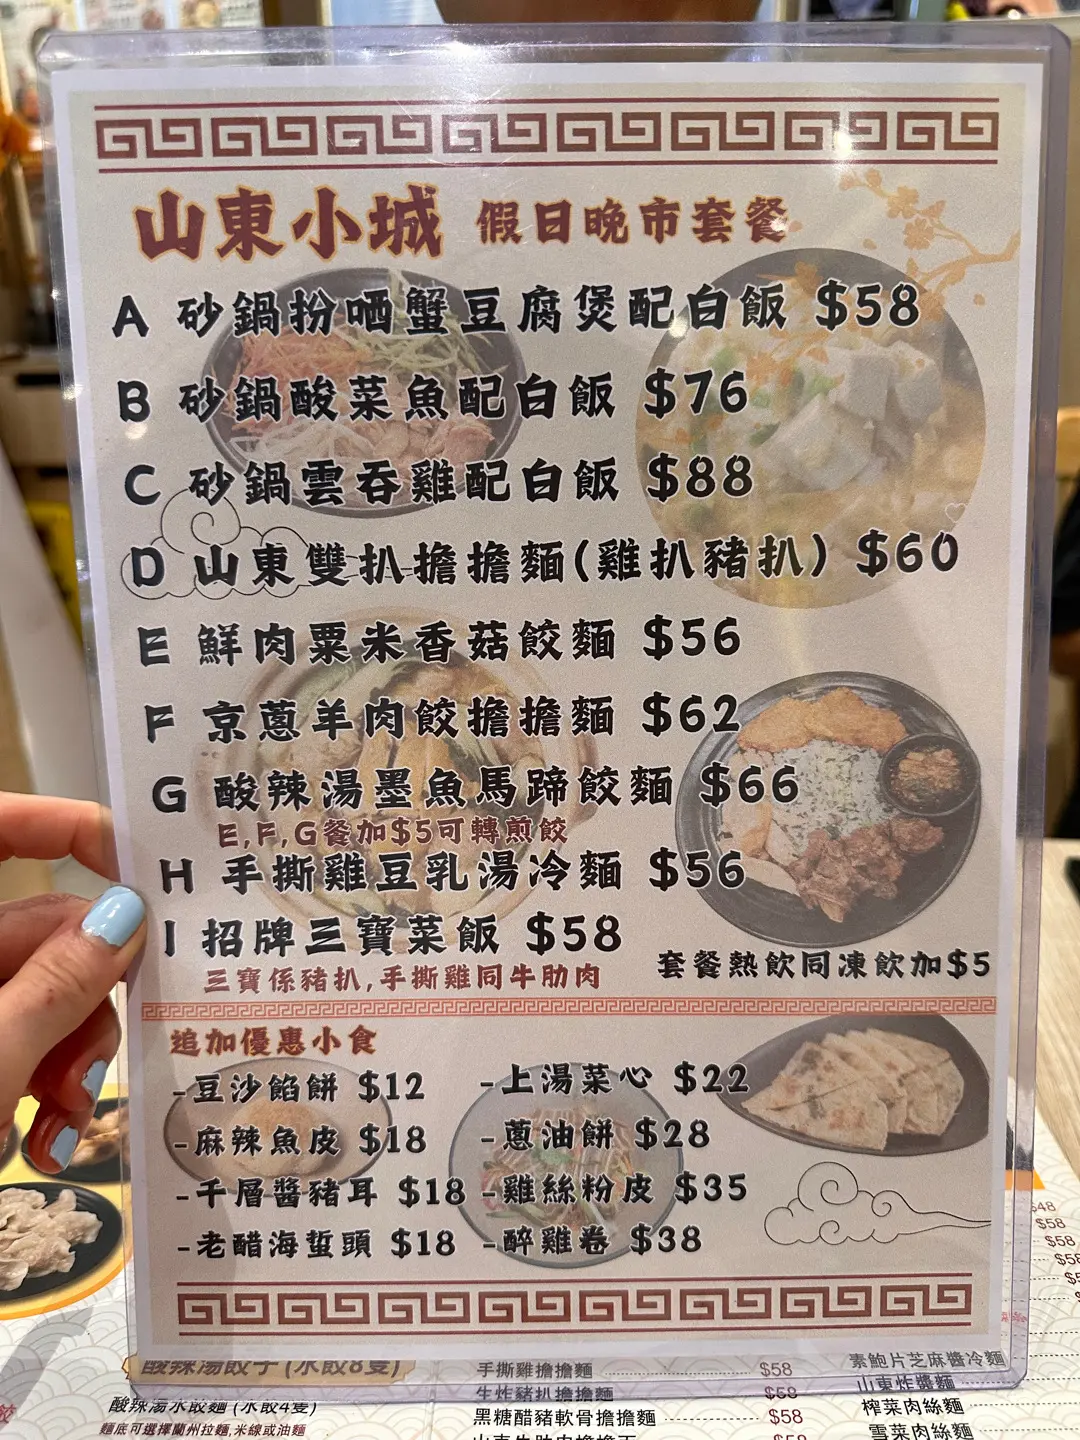 山東小城 假日晚市套餐
A 砂鍋扮哂蟹豆腐煲配白飯 $58
B 砂鍋酸菜魚配白飯 $76
C 砂鍋雲吞雞配白飯 $88
D 山東雙扒擔擔麵(雞扒豬扒) $60
E 鮮肉粟米香菇餃麵 $56
F 京蔥羊肉餃擔擔麵 $62
G 酸辣湯墨魚馬蹄餃麵 $66
E,F,G餐加$5可轉煎餃
H 手撕雞豆乳湯冷麵 $56
I 招牌三寶菜飯 $58
三寶係豬扒,手撕雞同牛肋肉
套餐熱飲同凍飲加$5
追加優惠小食
-豆沙餡餅 $12
-麻辣魚皮 $18
-千層醬豬耳 $18
-老醋海蜇頭 $18
-上湯菜心 $22
-蔥油餅 $28
-雞絲粉皮 $35
-醉雞卷 $38
酸辣湯餃子(水餃8隻)
酸辣湯水餃麵 (水餃4隻)
麵底可選擇蘭州拉麵,米線或油麵
手撕雞擔擔麵 $58
生炸豬扒擔擔麵 $58
黑糖醋豬軟骨擔擔麵 $58
$58
$48
$58
$58
素鮑片芝麻醬冷麵
山東炸醬麵
榨菜肉絲麵
雪菜肉絲麵